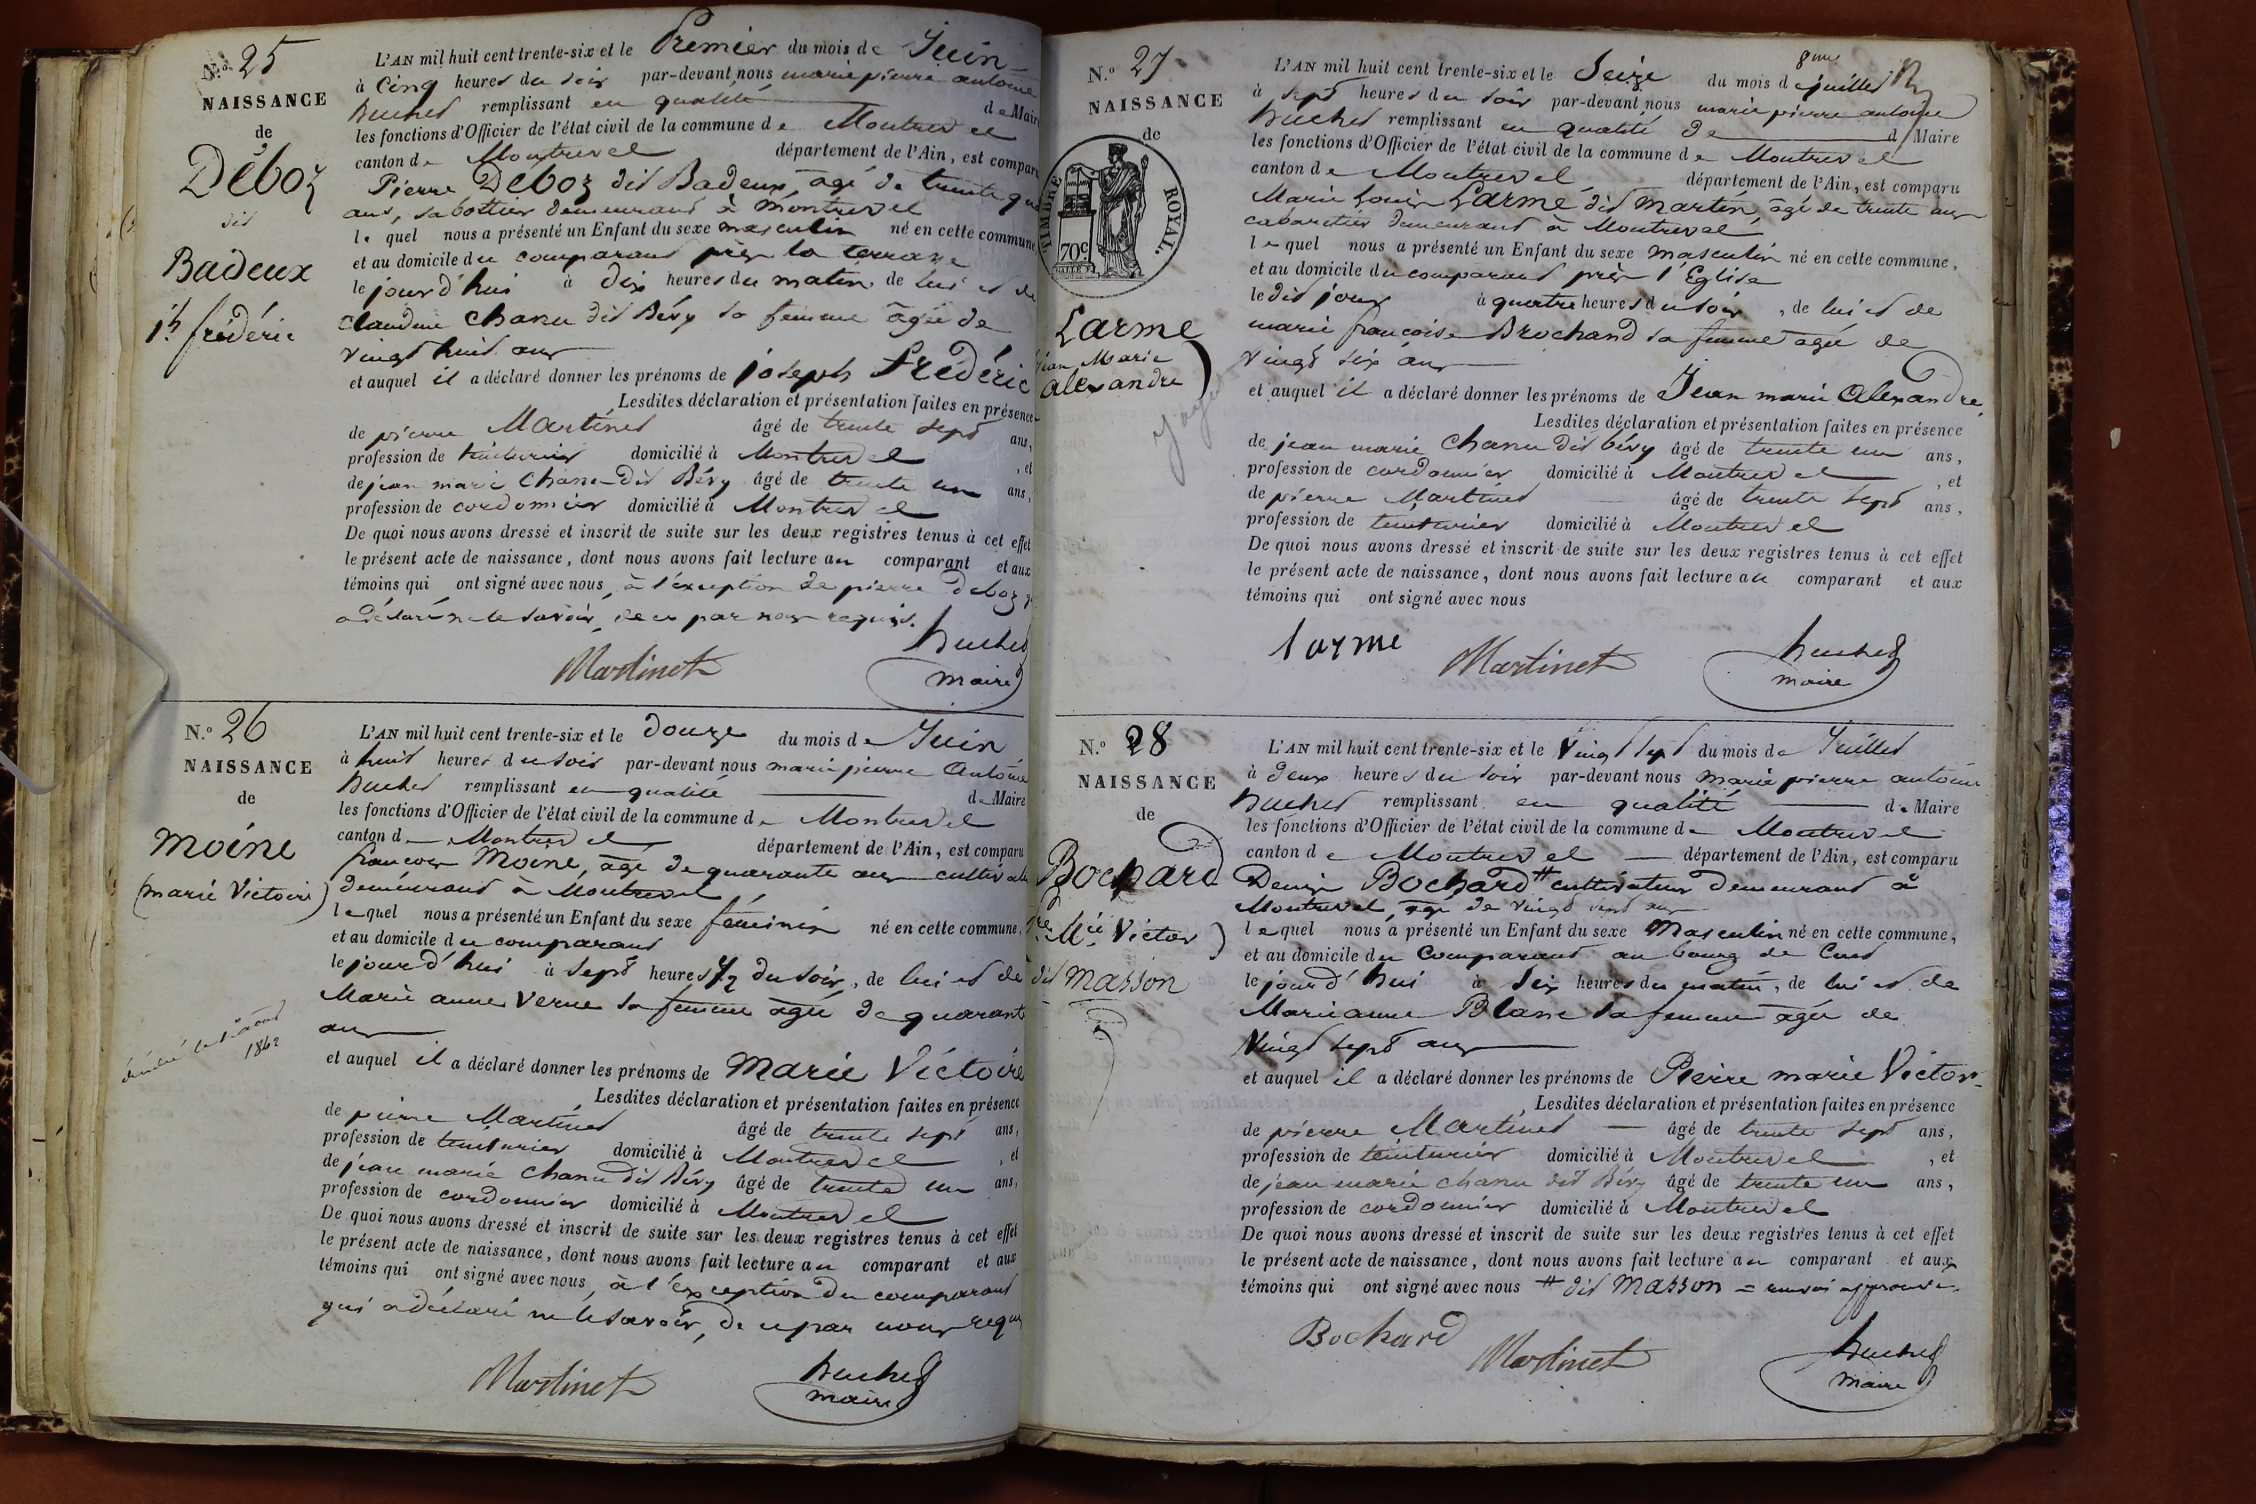 N.º 25
NAISSANCE
de
Déboz
dit
Badeux
jh frédéric
L'AN mil huit cent trente-six et le Premier du mois de Juin
à Cinq heures du soir par-devant nous marie pierre antoine
huchet remplissant en qualité de Maire
les fonctions d'Officier de l'état civil de la commune de Montrevel
canton de Montrevel département de l'Ain, est comparu
Pierre Deboz dit Badeux, agé de trente
ans, sabottier demeurant à Montrevel
lequel nous a présenté un Enfant du sexe masculin né en cette commune,
et au domicile du comparant près la terrasse
le jourd'hui à dix heures du matin de lui et de
claudine Chanu dit Bévy sa femme agée de
vingt huit ans
et auquel il a déclaré donner les prénoms de joseph frédéric
Lesdites déclaration et présentation faites en présence
de pierre Martinet âgé de trente sept ans,
profession de teinturier domicilié à Montrevel , et
de jean marie Chanu dit Bévy âgé de trente un ans,
profession de cordonnier domicilié à Montrevel
De quoi nous avons dressé et inscrit de suite sur les deux registres tenus à cet effet
le présent acte de naissance, dont nous avons fait lecture au comparant et aux
témoins qui ont signé avec nous, à l'éxception de pierre deboz
a déclaré ne le savoir, de ce par nous requis.
Martinet huchet
maire
N.º 26
NAISSANCE
de
moine
(marie Victoire)
décédé le août
1862
L'AN mil huit cent trente-six et le douze du mois de Juin
à huit heures du soir par-devant nous marie pierre Antoine
huchet remplissant en qualité de Maire
les fonctions d'Officier de l'état civil de la commune de Montrevel
canton de Montrevel, département de l'Ain, est comparu
françois Moine, agé de quarante ans cultivateur
demeurant à Montrevel
lequel nous a présenté un Enfant du sexe féminin né en cette commune,
et au domicile du comparant
le jourd'hui à sept heures 1/2 du soir, de lui et de
Marie anne Verne sa femme agée de quarante
ans
et auquel il a déclaré donner les prénoms de Marie Victoire
Lesdites déclaration et présentation faites en présence
de pierre Martinet âgé de trente sept ans,
profession de teinturier domicilié à Montrevel , et
de jean marie Chanu dit Bévy âgé de trente un ans,
profession de cordonnier domicilié à Montrevel
De quoi nous avons dressé et inscrit de suite sur les deux registres tenus à cet effet
le présent acte de naissance, dont nous avons fait lecture au comparant et aux
témoins qui ont signé avec nous, à l'éxception du comparant
qui a déclaré ne le savoir, de ce par nous requis
Martinet huchet
maire
N.º 27
NAISSANCE
de
TIMBRE ROYAL.
70c
Larme
jean Marie
alexandre)
L'AN mil huit cent trente-six et le Seize du mois de juillet
à sept heures du soir par-devant nous marie pierre antoine
huchet remplissant en qualité de d Maire
les fonctions d'Officier de l'état civil de la commune de Montrevel
canton de Montrevel département de l'Ain, est comparu
Marie Louis Larme dit Martin, âgé de trente ans
cabaretier demeurant à Montrevel
lequel nous a présenté un Enfant du sexe masculin né en cette commune,
et au domicile du comparant près l'Eglise
le dit jour à quatre heures du soir, de lui et de
marie françoise Brochand sa femme agée de
vingt six ans
et auquel il a déclaré donner les prénoms de Jean marie Alexandre
Lesdites déclaration et présentation faites en présence
de jean marie Chanu dit bévy âgé de trente un ans,
profession de cordonnier domicilié à Montrevel , et
de pierre Martinet âgé de trente sept ans,
profession de teinturier domicilié à Montrevel
De quoi nous avons dressé et inscrit de suite sur les deux registres tenus à cet effet
le présent acte de naissance, dont nous avons fait lecture au comparant et aux
témoins qui ont signé avec nous
larme Martinet huchet
maire
N.º 28
NAISSANCE
de
Bochard
pre Mie Victor)
dit Masson
L'AN mil huit cent trente-six et le Vingt sept du mois de Juillet
à deux heures du soir par-devant nous marie pierre antoine
huchet remplissant en qualité de Maire
les fonctions d'Officier de l'état civil de la commune de Montrevel
canton de Montrevel département de l'Ain, est comparu
Denis Bochard # cultivateur demeurant à
Montrevel, agé de vingt sept ans
lequel nous a présenté un Enfant du sexe Masculin né en cette commune,
et au domicile du comparant au bourg de Cuet
le jourd'hui à Six heures du matin, de lui et de
Marianne Blanc sa femme agée de
Vingt sept ans
et auquel il a déclaré donner les prénoms de Pierre marie Victor
Lesdites déclaration et présentation faites en présence
de pierre Martinet âgé de trente sept ans,
profession de teinturier domicilié à Montrevel , et
de jean marie chanu dit Bévy âgé de trente un ans,
profession de cordonnier domicilié à Montrevel
De quoi nous avons dressé et inscrit de suite sur les deux registres tenus à cet effet
le présent acte de naissance, dont nous avons fait lecture au comparant et aux
témoins qui ont signé avec nous # dit Masson = renvoi approuvé.
Bochard Martinet huchet
maire